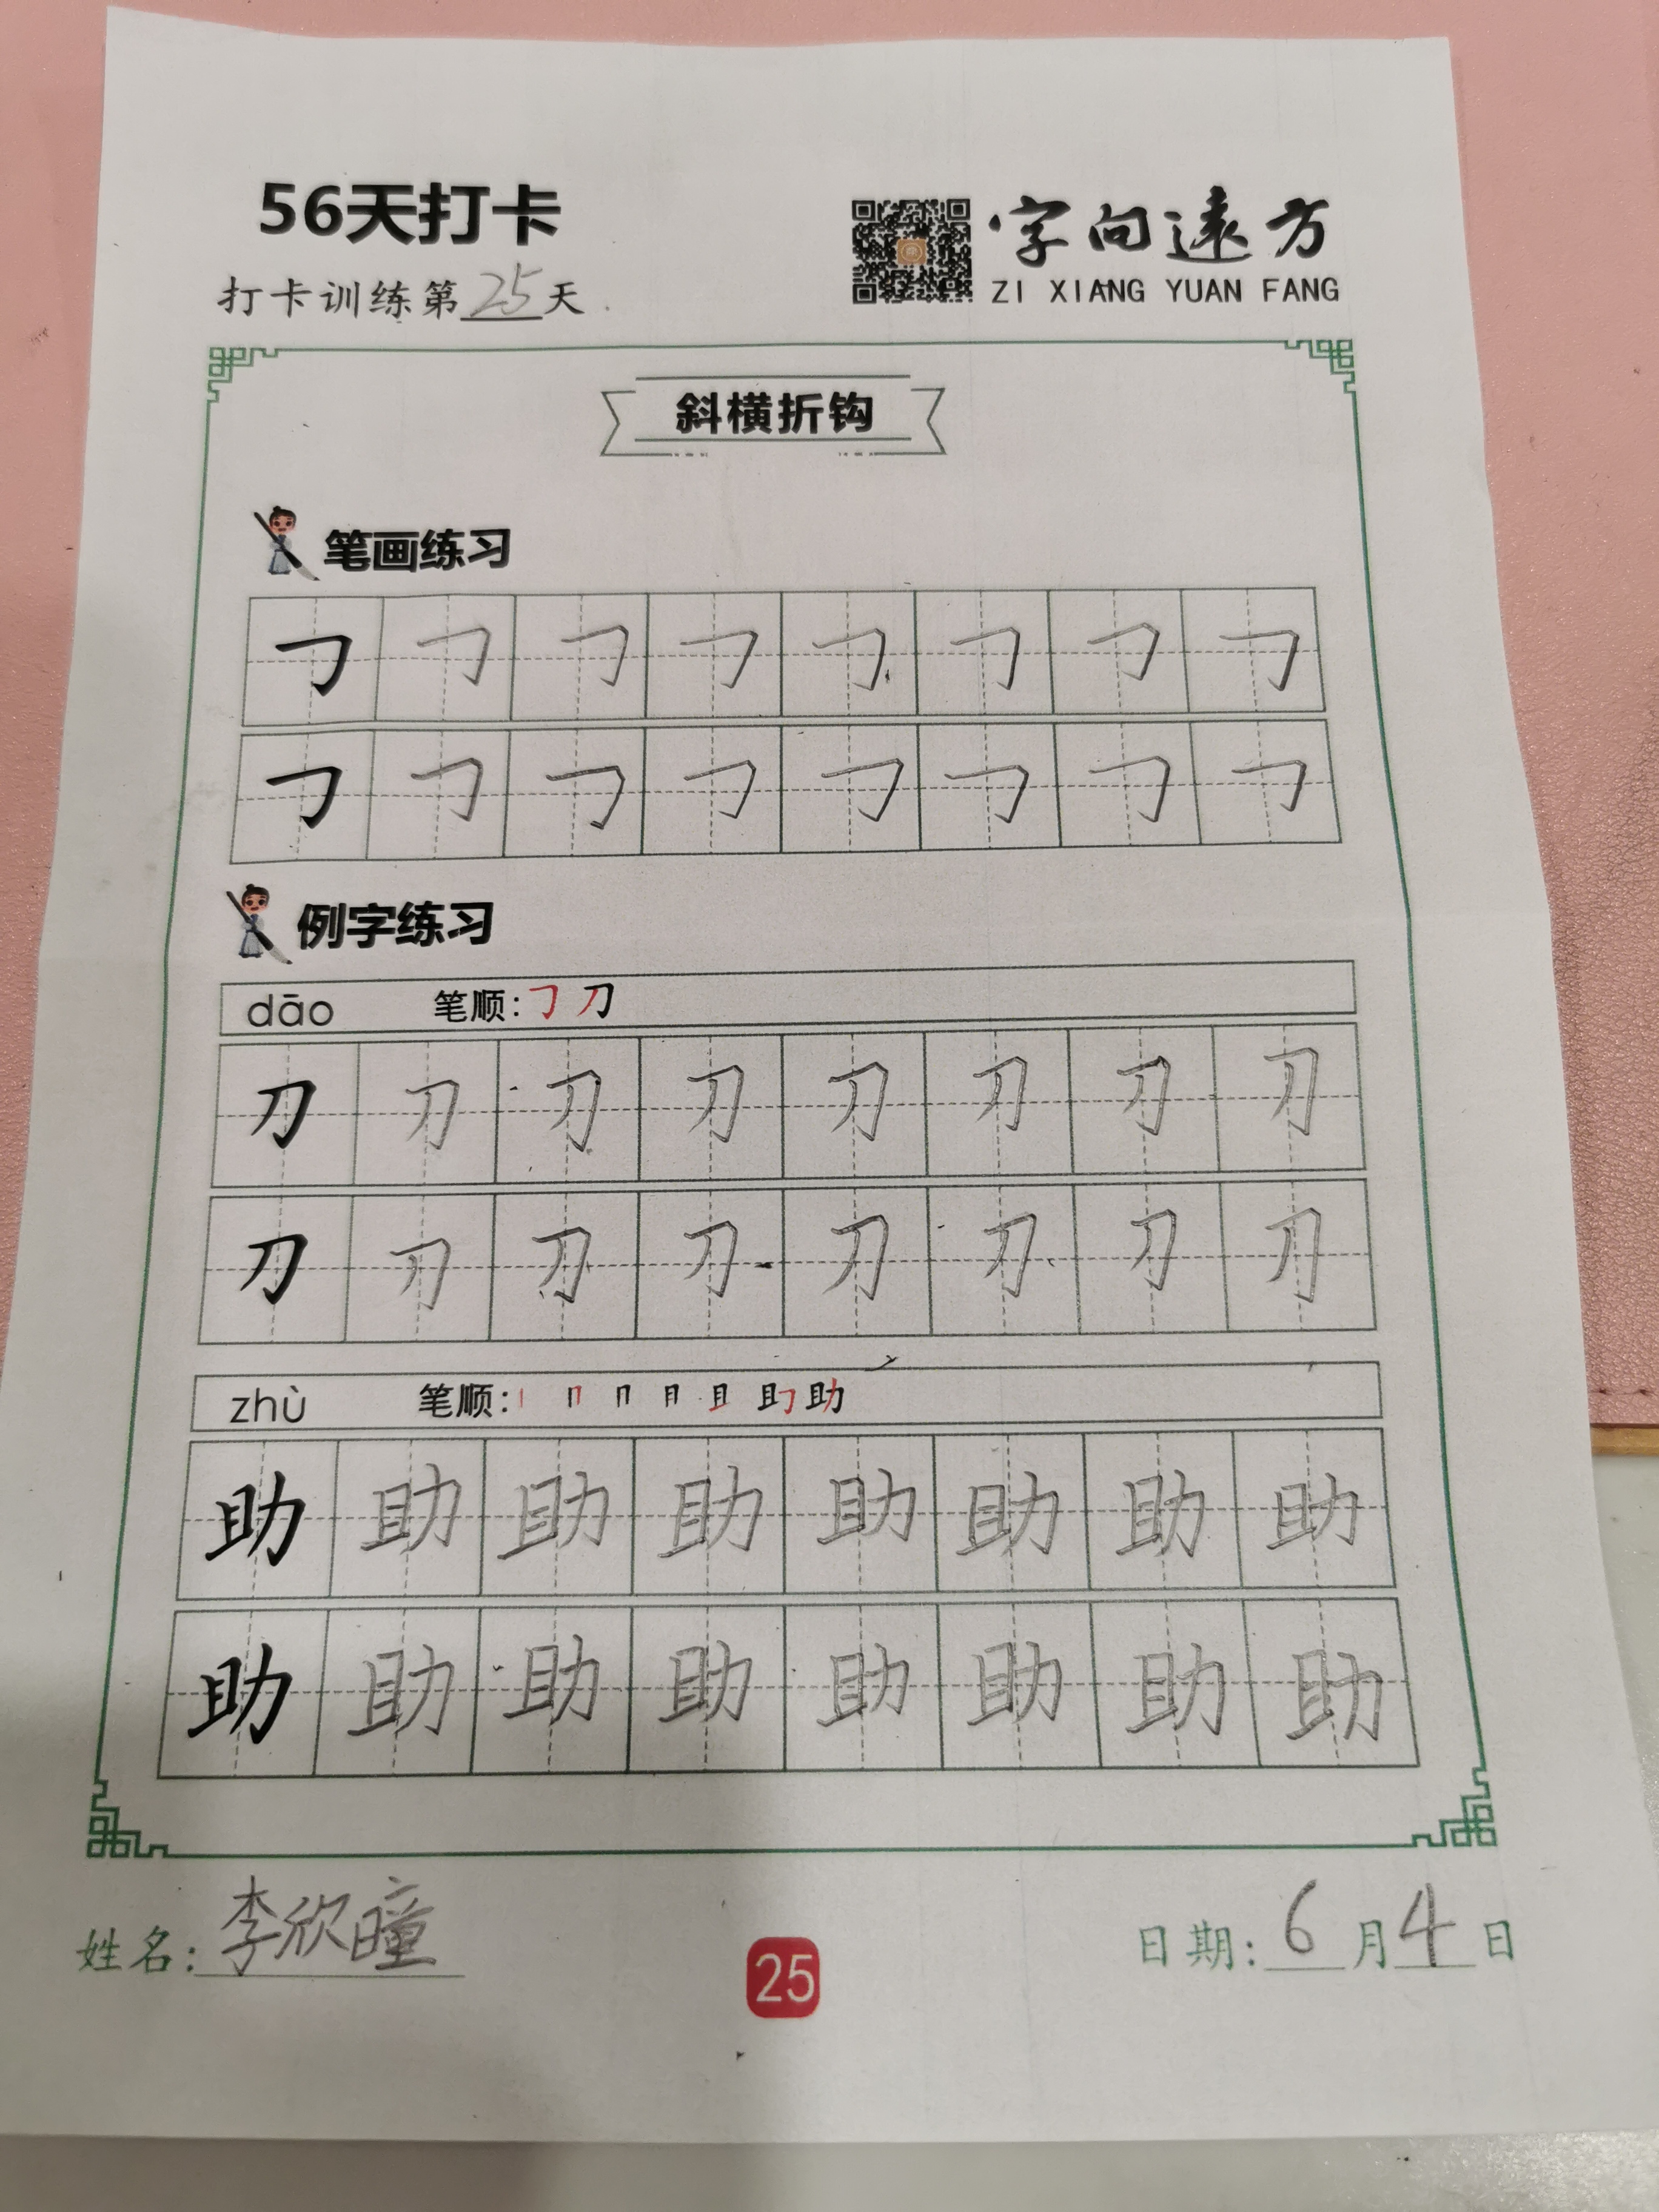 56天打卡
打卡训练第25天
字向遠方
ZI XIANG YUAN FANG
斜横折钩
笔画练习
㇆ ㇆ ㇆ ㇆ ㇆ ㇆ ㇆ ㇆
㇆ ㇆ ㇆ ㇆ ㇆ ㇆ ㇆ ㇆
例字练习
dāo 笔顺: ㇆ 刀
刀 刀 刀 刀 刀 刀 刀 刀
刀 刀 刀 刀 刀 刀 刀 刀
zhù 笔顺: 助
助 助 助 助 助 助 助 助
助 助 助 助 助 助 助 助
姓名: 李欣瞳
25
日期: 6月4日